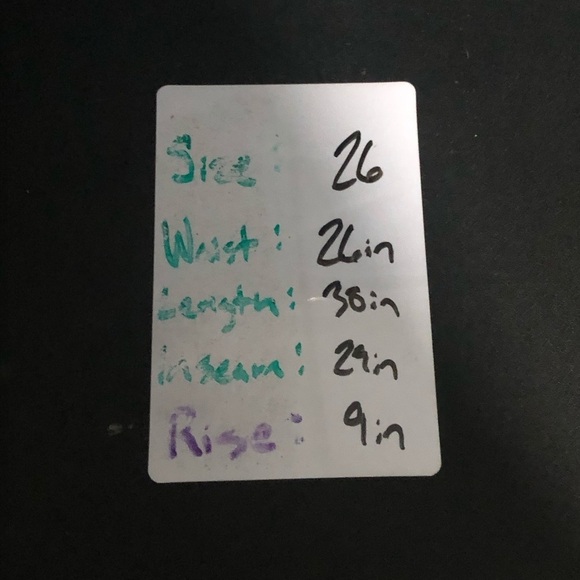 Size: 26
Waist: 26in
Length: 38in
inseam: 29in
Rise: 9in